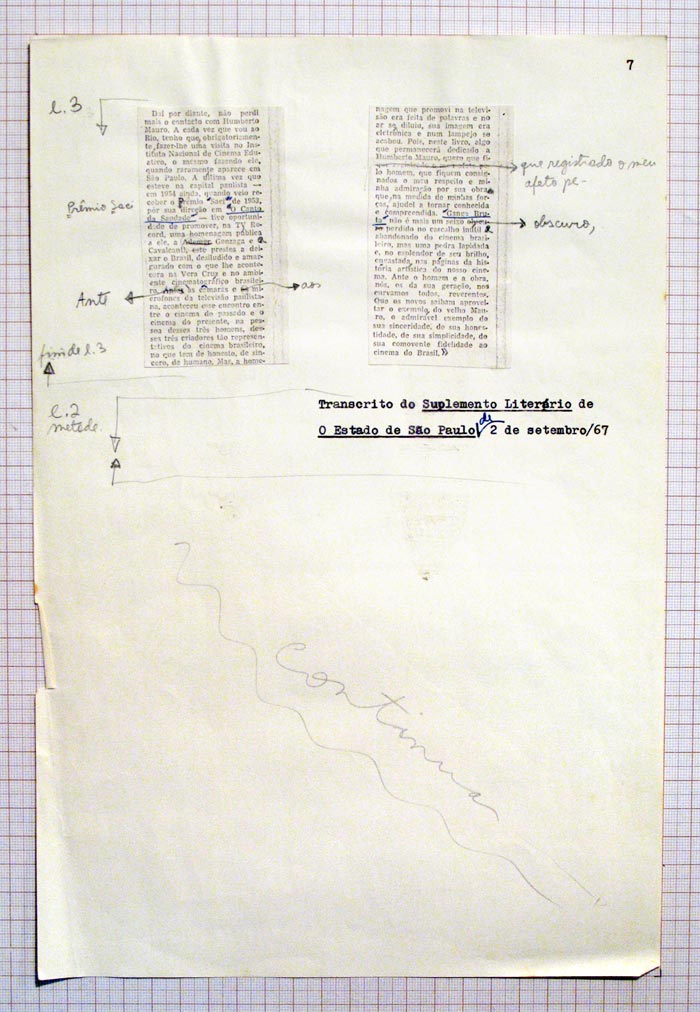 7
l.3
Daí por diante, não perdi
mais o contacto com Humberto
Mauro. A cada vez que vou ao
Rio, tenho que, obrigatòriamen-
te, fazer-lhe uma visita no Ins-
tituto Nacional de Cinema Edu-
cativo, o mesmo fazendo ele,
quando raramente aparece em
São Paulo. A última vez que
esteve na capital paulista —
em 1954 ainda, quando veio re-
ceber o Prêmio "Saci" de 1953,
por sua direção em "O Canto
da Saudade" — tive oportuni-
dade de promover, na TV Re-
cord, uma homenagem pública
a ele, a Ademar Gonzaga e a
Cavalcanti, este prestes a dei-
xar o Brasil, desiludido e amar-
gurado com o que lhe aconte-
cera na Vera Cruz e no ambi-
ente cinematográfico brasilei-
ro. Antes as câmaras e os mi-
crofones da televisão paulista-
na, aconteceu esse encontro en-
tre o cinema do passado e o
cinema do presente, na pes-
soa desses três homens, des-
ses três criadores tão represen-
tativos do cinema brasileiro,
no que tem de honesto, de sin-
cero, de humano. Mas, a home-
Prêmio Saci
Ante
aos
fim de l.3
nagem que promovi na televi-
são era feita de palavras e no
ar se diluiu, sua imagem era
eletrônica e num lampejo se
acabou. Pois, neste livro, algo
que permanecerá dedicado a
Humberto Mauro, quero que fi-
pelo homem, que fiquem consig-
nados o meu respeito e mi-
nha admiração por sua obra
que, na medida de minhas for-
ças, ajudei a tornar conhecida
e compreendida. "Ganga Bru-
ta" não é mais um
perdido no cascalho inútil e
abandonado do cinema brasi-
leiro, mas uma pedra lapidada
e, no esplendor de seu brilho,
engastada nas páginas da his-
tória artística do nosso cine-
ma. Ante o homem e a obra,
nós, os da sua geração, nos
curvamos todos, reverentes.
Que os novos saibam aprovei-
tar o exemplo do velho Mau-
ro, o admirável exemplo de
sua sinceridade, de sua hones-
tidade, de sua simplicidade, de
sua comovente fidelidade ao
cinema do Brasil."
que registrado o meu
afeto pe-
obscuro,
l.2
metade
Transcrito do Suplemento Literário de
O Estado de São Paulo, de 2 de setembro/67
Continua